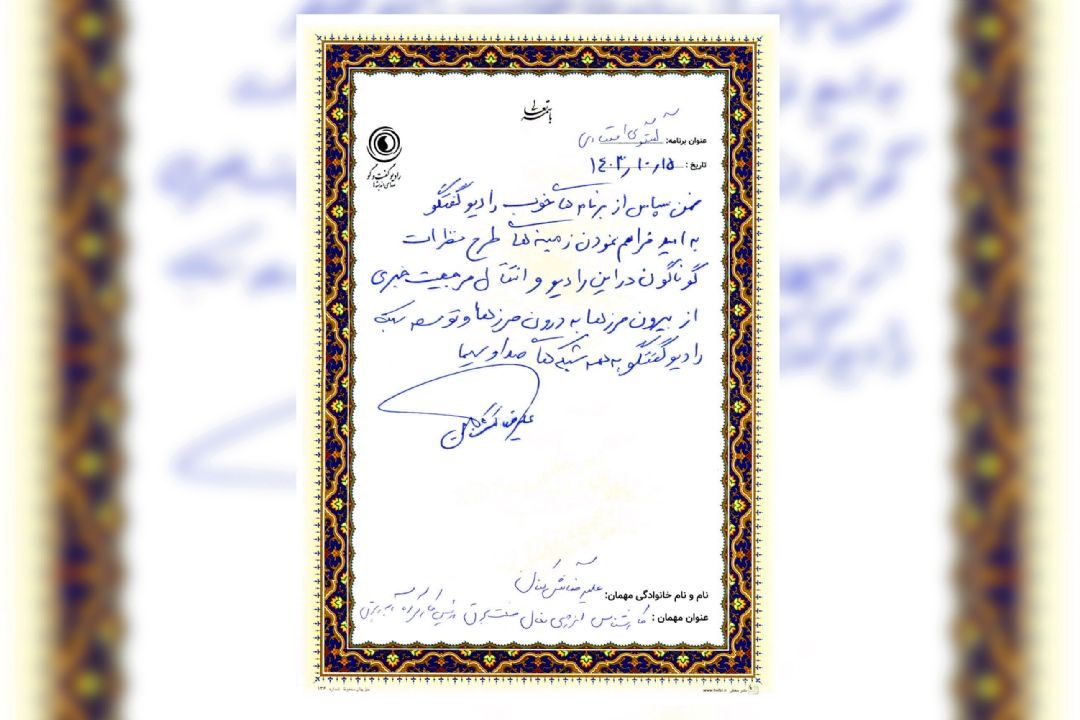 باسمه تعالی
رادیو گفت و گو
عنوان برنامه: گفتگوی اقتصادی
تاریخ: ۱۴۰۳/۱۰/۱۵
ضمن سپاس از برنامه های خوب رادیو گفتگو
به امید فراهم نمودن زمینه های طرح نظرات
گوناگون در این رادیو و انتقال مرجعیت خبری
از بیرون مرزها به درون مرزها و توسعه سبک
رادیو گفتگو به همه شبکه های صدا و سیما
علیرضا
نام و نام خانوادگی مهمان: علیرضا
عنوان مهمان: کارشناس انرژی فعال صنعت برق